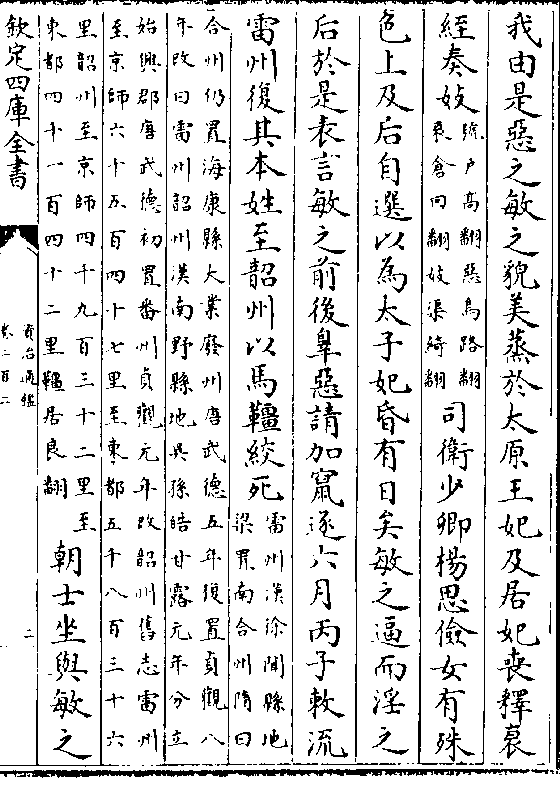 我由是惡之敏之貌美蒸於太原王妃及居妃喪釋衰
絰奏妓
號戶高翻惡烏路翻
衰倉回翻妓渠綺翻
司衛少卿楊思儉女有殊
色上及后自選以為太子妃昏有日矣敏之逼而淫之
后於是表言敏之前後辠惡請加竄逐六月丙子敕流
雷州復其本姓至韶州以馬韁絞死
雷州漢徐聞縣地
梁置南合州隋曰
合州仍置海康縣大業廢州唐武德五年復置貞觀八
年改曰雷州韶州漢南野縣地吳孫皓甘露元年分立
始興郡唐武德初置番州貞觀元年改韶州舊志雷州
至京師六十五百四十七里至東都五千八百三十六
里韶州至京師四千九百三十二里至
東都四十一百四十二里韁居良翻
朝士坐與敏之
欽定四庫全書
資治通鑑
卷二百二
二